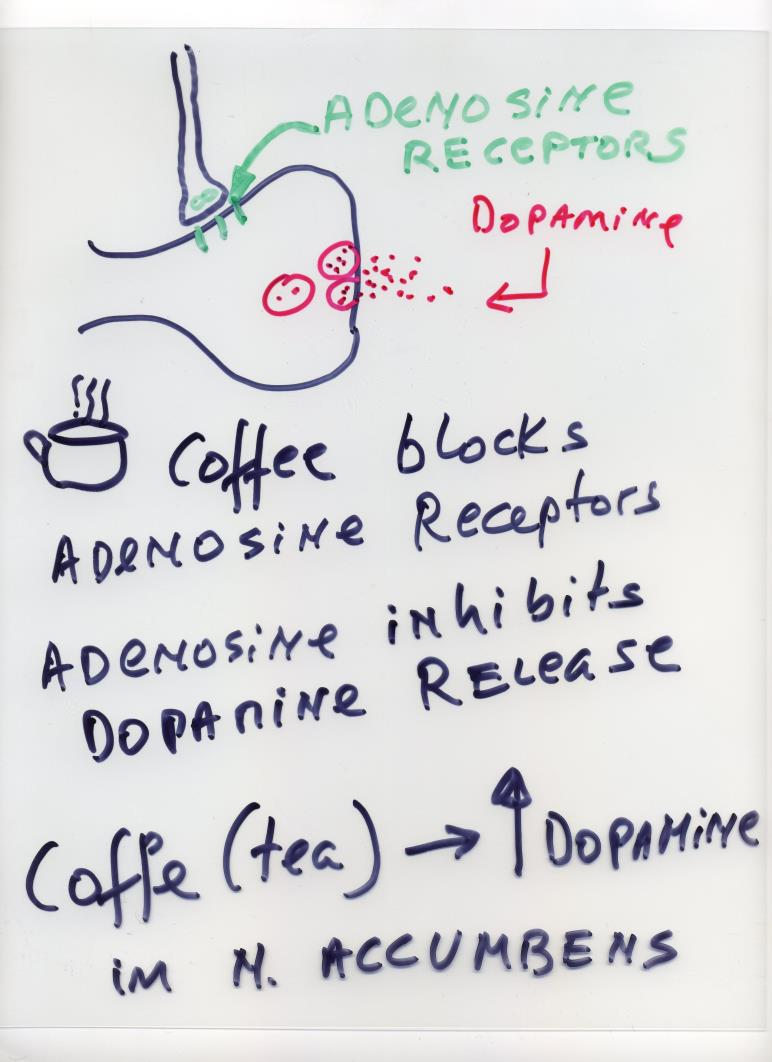 ADENOSINE
RECEPTORS
DOPAMINE
Coffee blocks
ADENOSINE Receptors
ADENOSINE inhibits
DOPAMINE RELEASE
Coffe (tea) → ↑ DOPAMINE
in N. ACCUMBENS